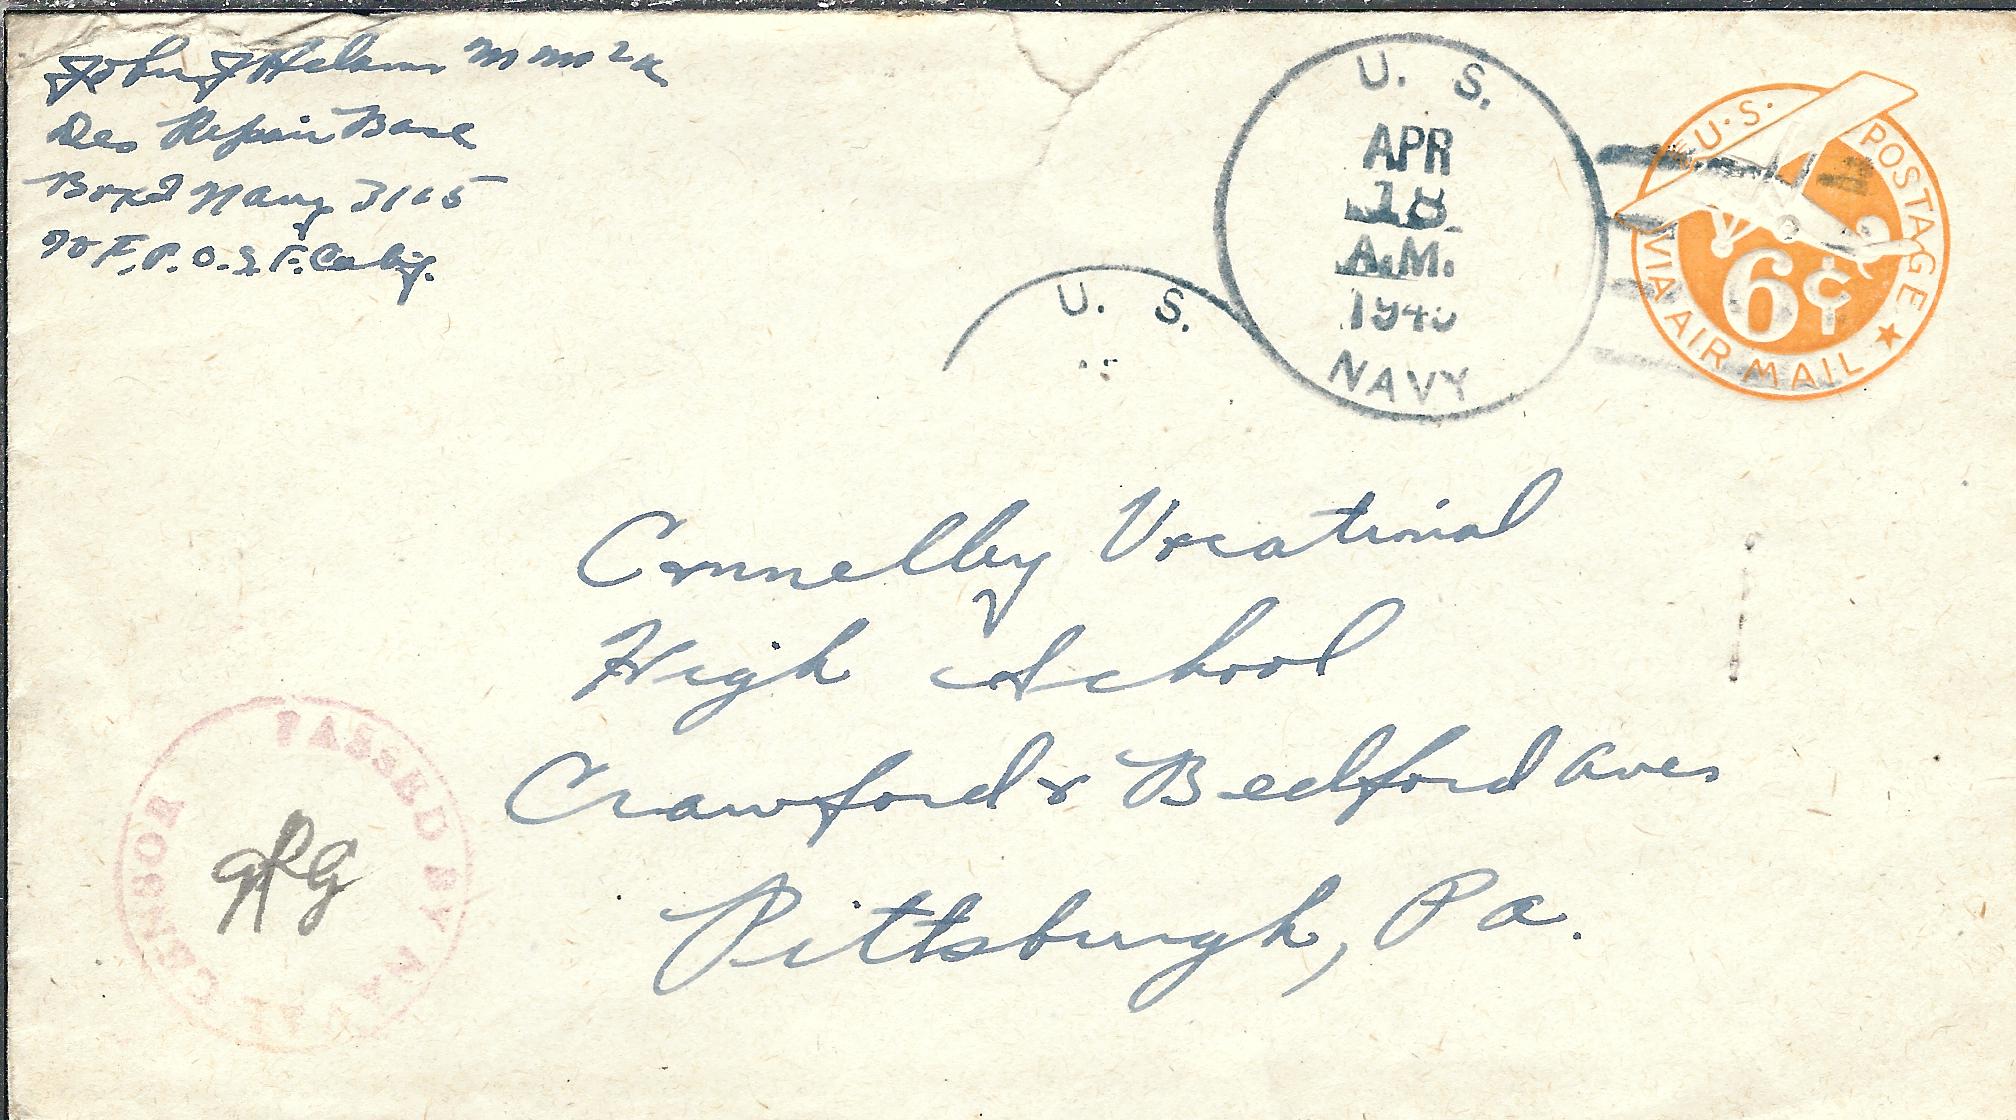 John J
Des Repair Base
Box 2 Navy 3165
% F.P.O. S.F. Calif.
U. S.
APR
18
A.M.
NAVY
U. S.
U.S. POSTAGE
VIA AIR MAIL
6¢
Connelley Vocational
High School
Crawford & Bedford Aves
Pittsburgh, Pa.
PASSED BY NAVAL CENSOR